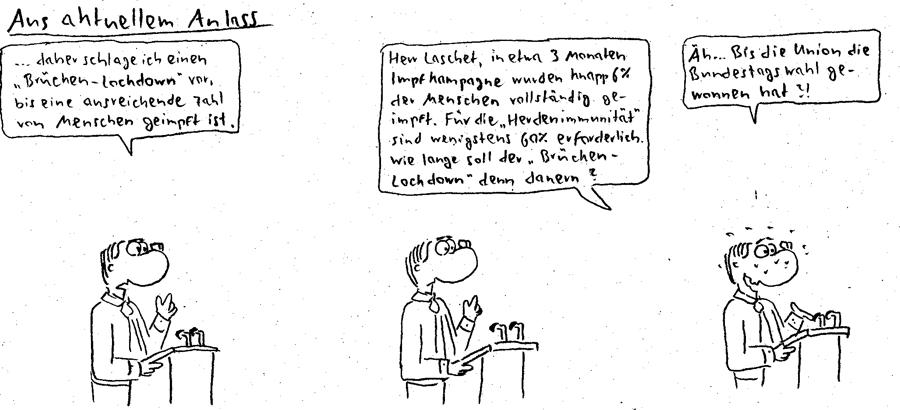 Aus aktuellem Anlass
... daher schlage ich einen
„Brücken-Lockdown" vor,
bis eine ausreichende Zahl
von Menschen geimpft ist.
Herr Laschet, in etwa 3 Monaten
Impfkampagne wurden knapp 6%
der Menschen vollständig ge-
impft. Für die „Herdenimmunität"
sind wenigstens 60% erforderlich.
Wie lange soll der „Brücken-
Lockdown" denn dauern?
Äh... Bis die Union die
Bundestagswahl ge-
wonnen hat?!